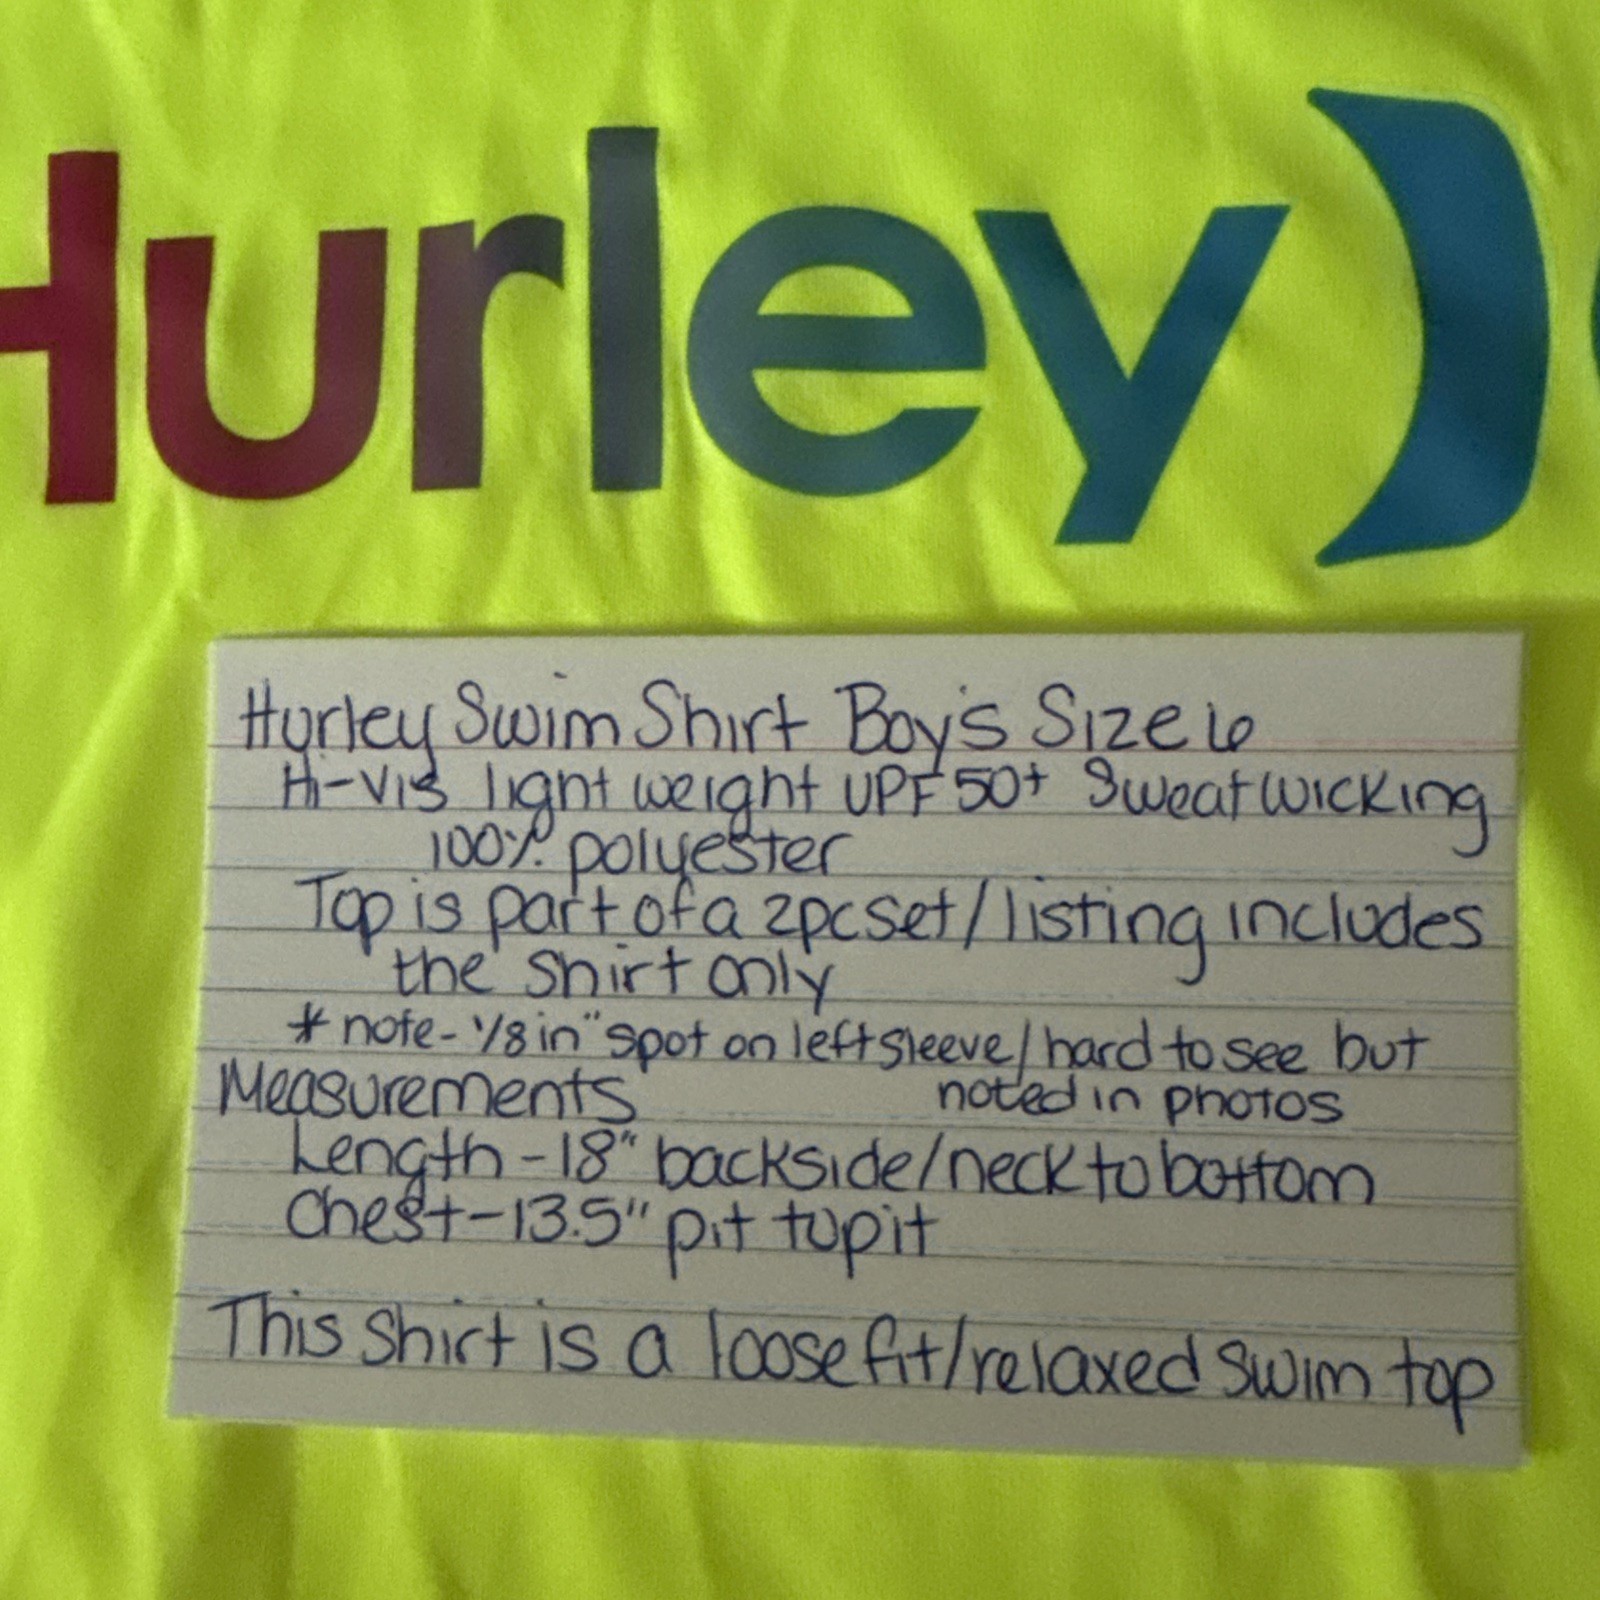 Hurley
Hurley Swim Shirt Boy's Size 6
Hi-Vis light weight UPF 50+ Sweat wicking
100% polyester
Top is part of a 2pc set/listing includes
the shirt only
* note - 1/8 in" spot on left sleeve/hard to see but
noted in photos
Measurements
Length - 18" backside/neck to bottom
Chest - 13.5" pit to pit
This shirt is a loose fit/relaxed swim top